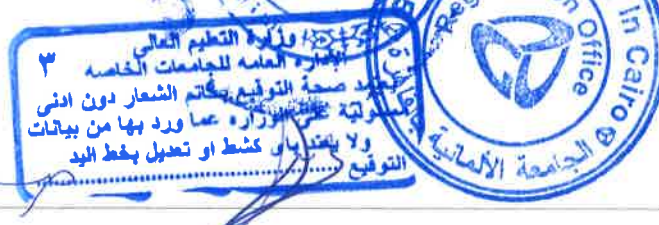 وزارة التعليم العالى
الإدارة العامه للجامعات الخاصه
٣
يعتمد صحة التوقيع بخاتم الشعار دون ادنى
مسئولية على الوزاره عما ورد بها من بيانات
ولا يعتد بأى كشط او تعديل بخط اليد
التوقيع
In Cairo
on Office
Reg
الجامعة الألمانية